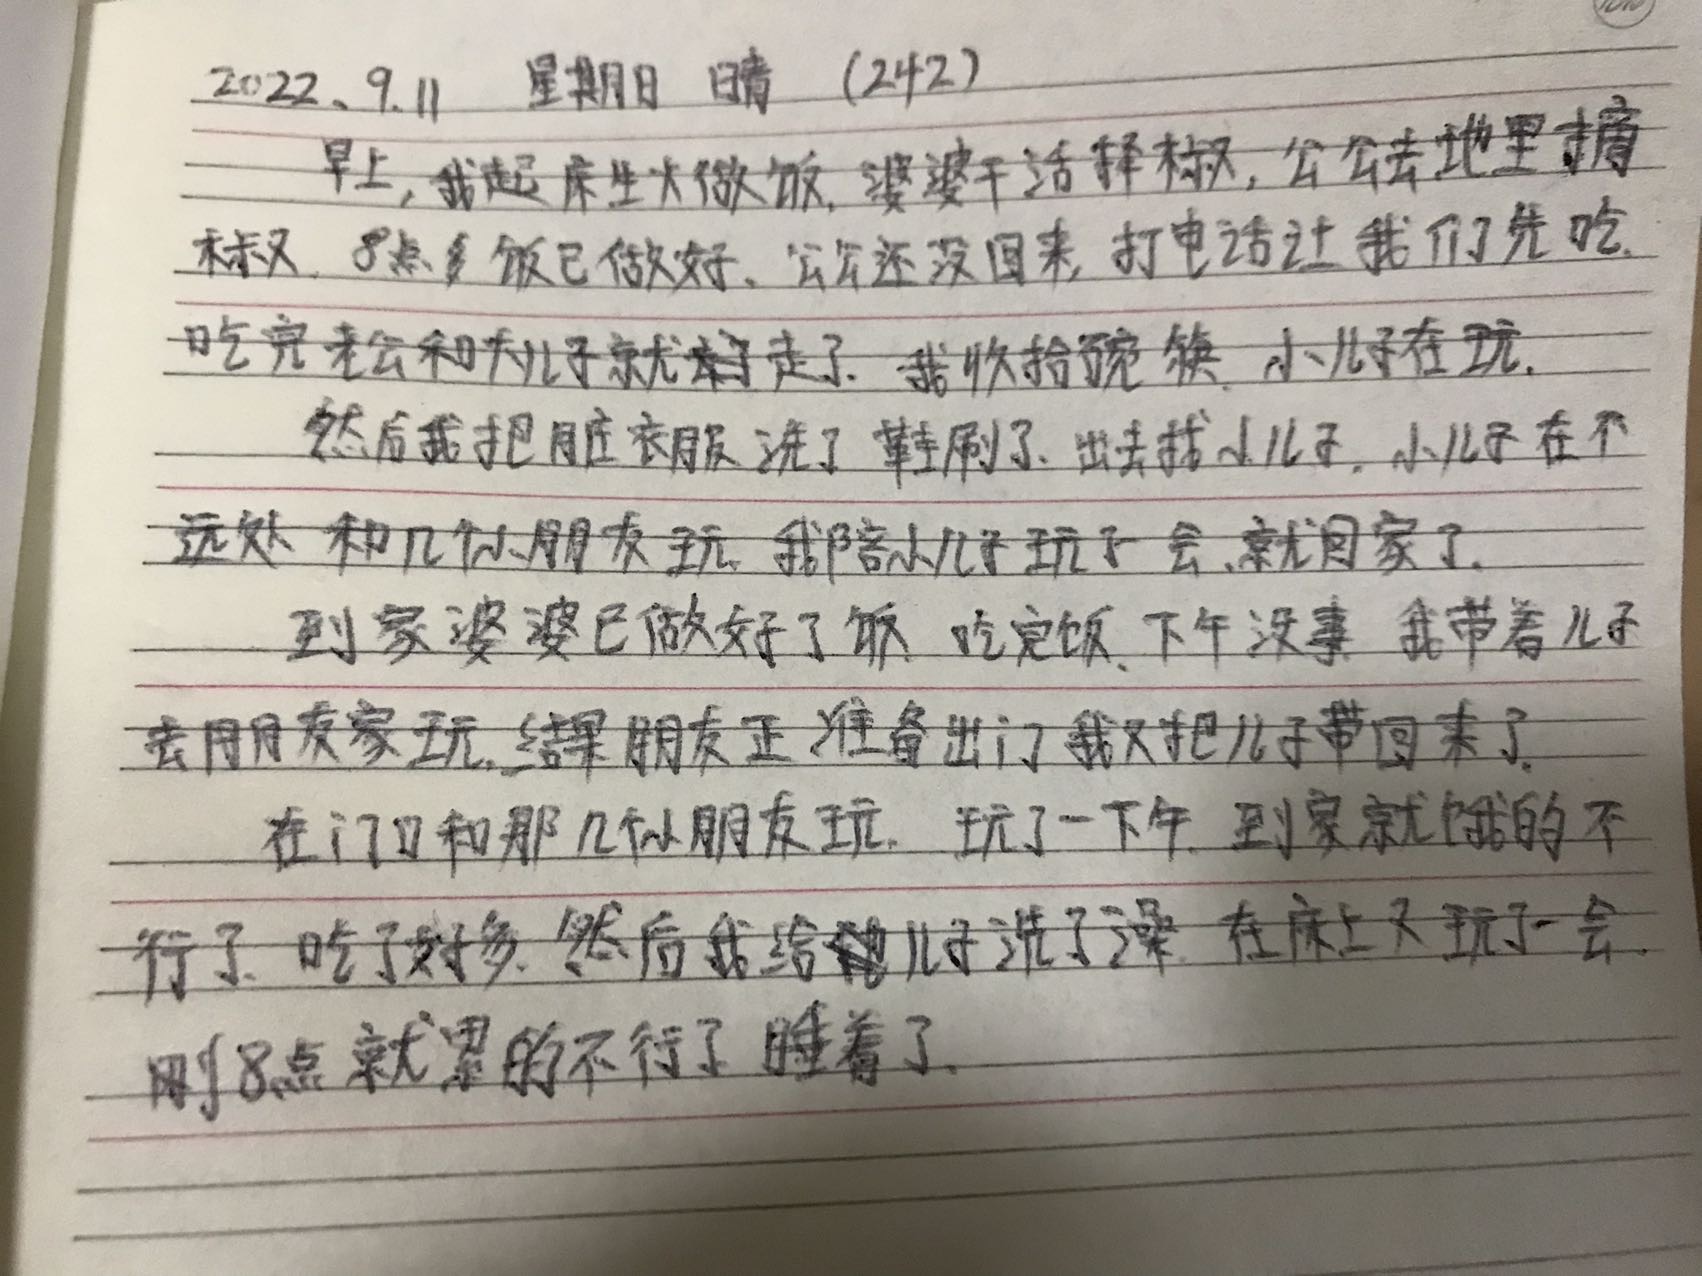 2022.9.11 星期日 晴 (242)
早上,我起床生火做饭,婆婆干活择椒,公公去地里摘
椒 8点多饭已做好、公公还没回来,打电话让我们先吃.
吃完老公和大儿子就走了.我收拾碗筷.小儿子在玩.
然后我把脏衣服洗了鞋刷了、出去找小儿子.小儿子在不
远处和几个小朋友玩.我陪小儿子玩了一会、就回家了.
到家婆婆已做好了饭.吃完饭、下午没事 我带着儿子
去朋友家玩.结果朋友正准备出门 我又把儿子带回来了.
在门口和那几个小朋友玩. 玩了一下午.到家就饿的不
行了.吃了好多.然后我给儿子洗了澡.在床上又玩了一会.
刚8点就累的不行了 睡着了.